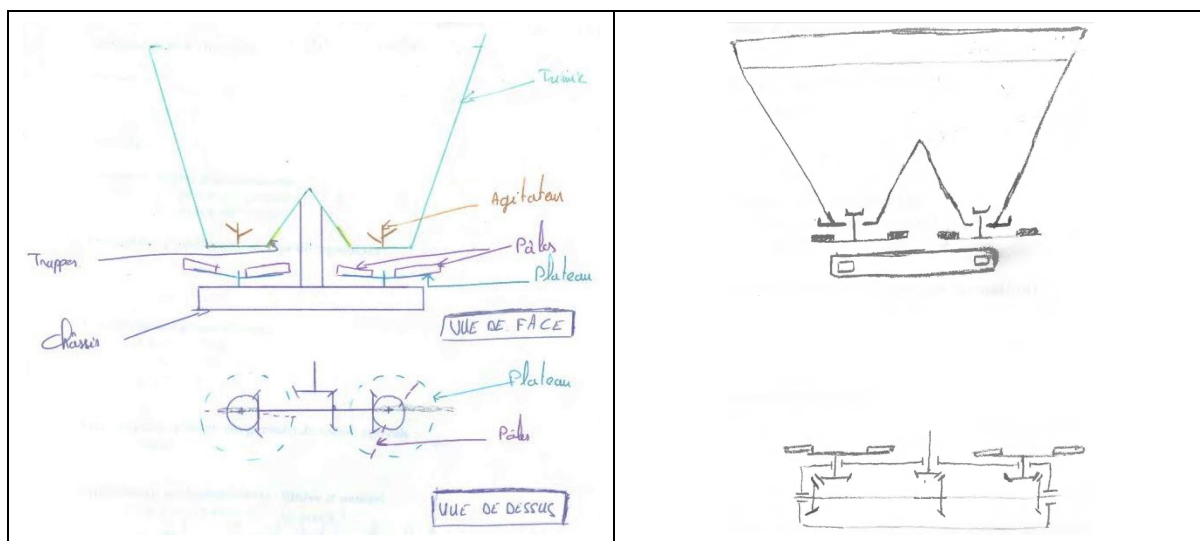 Trémie
Agitateur
Pâles
Trappes
Plateau
Châssis
VUE DE FACE
Plateau
Pâles
VUE DE DESSUS